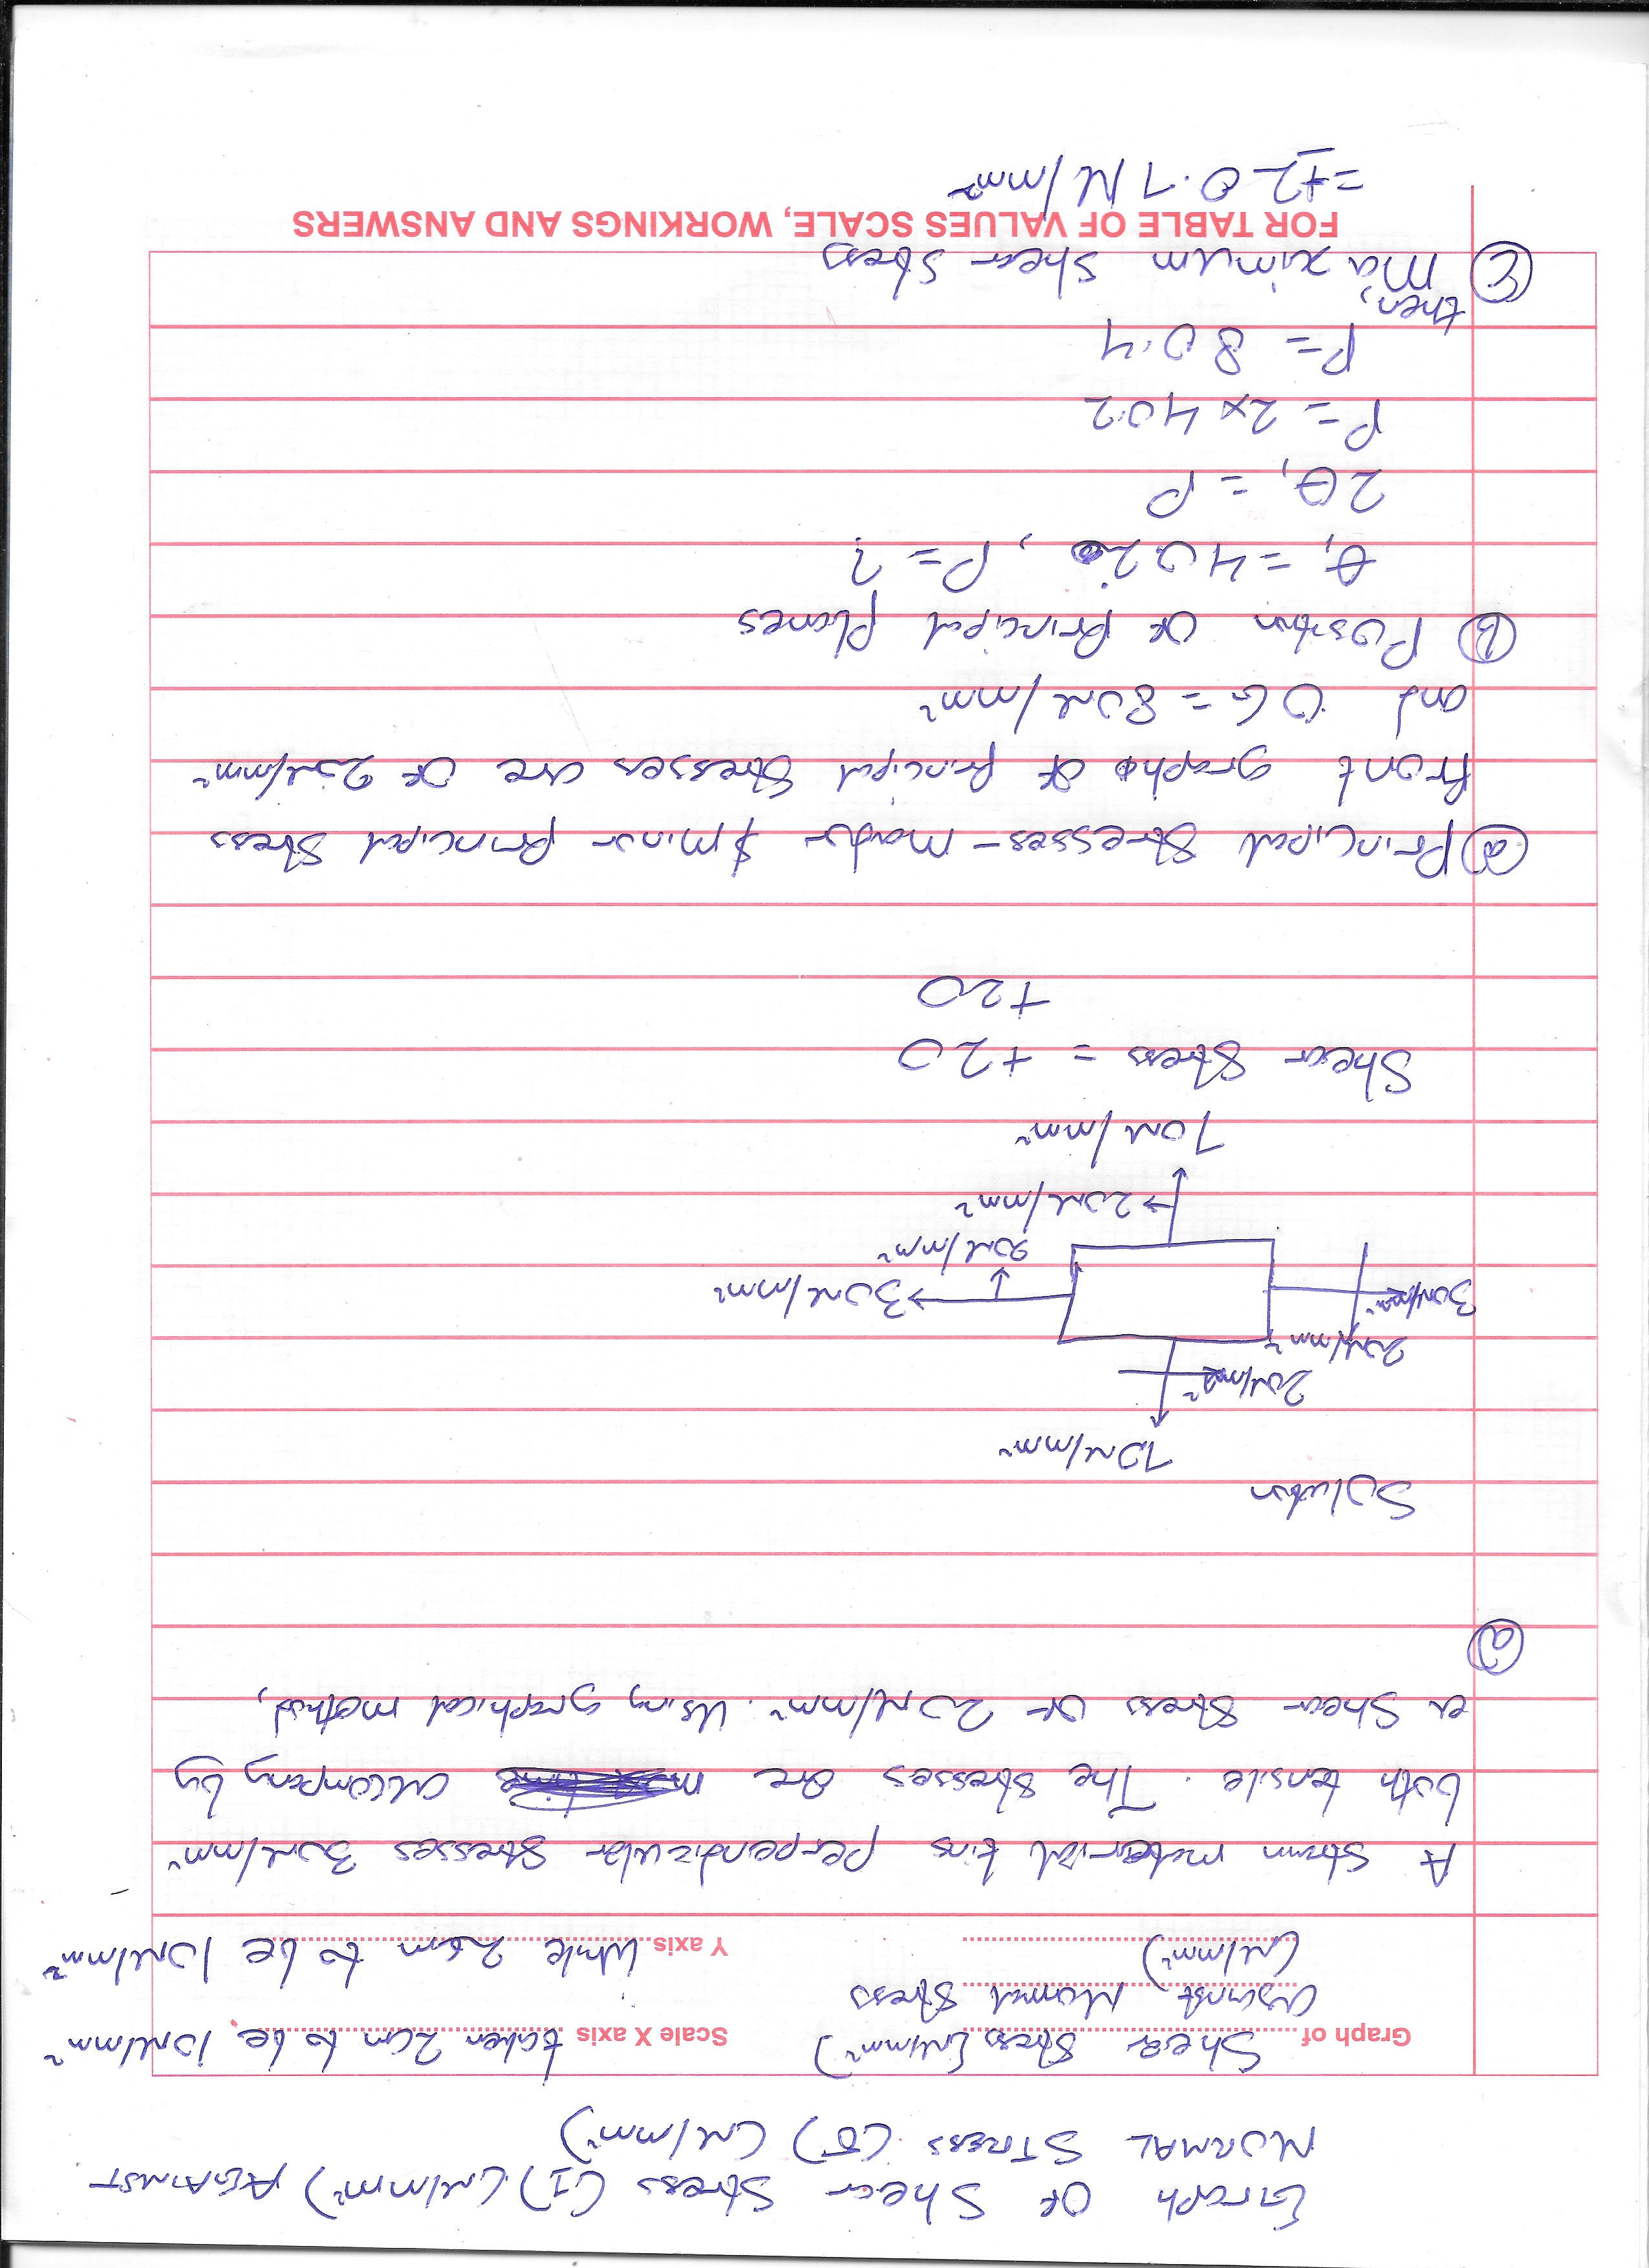 Graph OF Shear Stress (I) (N/mm²) AGAINST
NORMAL STRESS (σ) (N/mm²)
Graph of Shear Stress [N/mm²]
against Normal Stress
(N/mm²)
Scale X axis taken 2cm to be 10N/mm²
Y axis While 2cm to be 10N/mm²
A stram material perpendicular stresses 30N/mm²
both tensile. The stresses are accompany by
a Shear Stress OF 20N/mm². Using graphical method,
(a)
Solution
70N/mm²
20N/mm²
20N/mm²
30N/mm²
30N/mm²
20N/mm²
20N/mm²
70N/mm²
Shear Stress = +20
+20
(a) Principal Stresses - & minor principal Stress
front graph of principal Stresses are OF 20N/mm²
and OG = 80N/mm²
(b) Position OF Principal planes
θ₁ = 40.2°, P = ?
2θ₁ = P
P = 2x 40.2
P = 80.4
then,
(c) Maximum shear stress
FOR TABLE OF VALUES SCALE, WORKINGS AND ANSWERS
= ±20.7 N/mm²